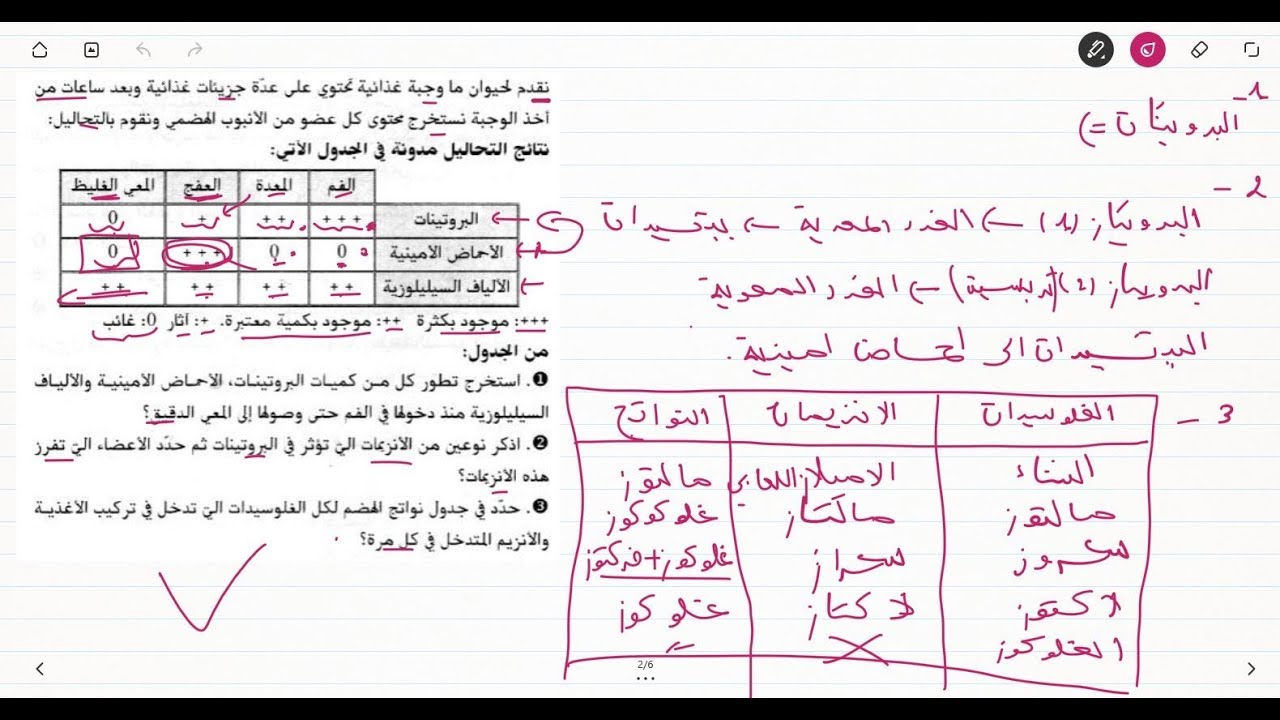 نقدم لحيوان ما وجبة غذائية تحتوي على عدّة جزيئات غذائية وبعد ساعات من
أخذ الوجبة نستخرج محتوى كل عضو من الأنبوب الهضمي ونقوم بالتحاليل:
نتائج التحاليل مدونة في الجدول الآتي:
الفم المعدة العفج المعي الغليظ
البروتينات +++ ++ + 0
الأحماض الأمينية 0 0 +++ 0
الألياف السيليلوزية ++ ++ ++ ++
+++: موجود بكثرة ++: موجود بكمية معتبرة. +: آثار 0: غائب
من الجدول:
❶. استخرج تطور كل من كميات البروتينات، الأحماض الأمينية والألياف
السيليلوزية منذ دخولها في الفم حتى وصولها إلى المعي الدقيق؟
❷. اذكر نوعين من الأنزيمات التي تؤثر في البروتينات ثم حدّد الأعضاء التي تفرز
هذه الأنزيمات؟
❸. حدّد في جدول نواتج الهضم لكل الغلوسيدات التي تدخل في تركيب الأغذية
والأنزيم المتدخل في كل مرة؟
1-
البروتينات =)
2 -
البروتياز (1) ← الغدد المعدية ← ببتيدات
البروتياز (2) (تربسية) ← الغدد المعوية
الببتيدات الى احماض امينية.
3 -
الغلوسيدات الانزيمات النواتج
النشاء الاميلاز اللعابي مالتوز
مالتوز مالتاز غلوكوكوز
سكروز سكراز غلوكوز+فركتوز
لاكتوز لاكتاز غلوكوز
الغلوكوز X -
2/6